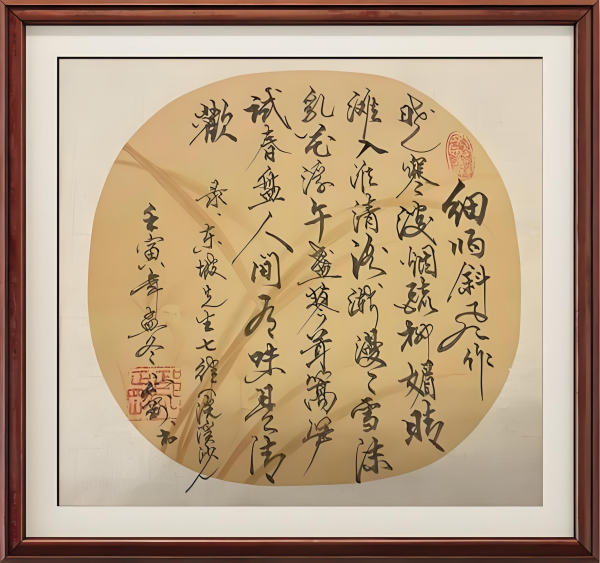 细雨斜风作
晓寒淡烟疏柳媚晴
滩入淮清洛渐漫々雪沫
乳花浮午盏蓼茸蒿笋
试春盘人间有味是清
歡
录东坡先生七律浣溪沙
壬寅年孟冬 刘 书